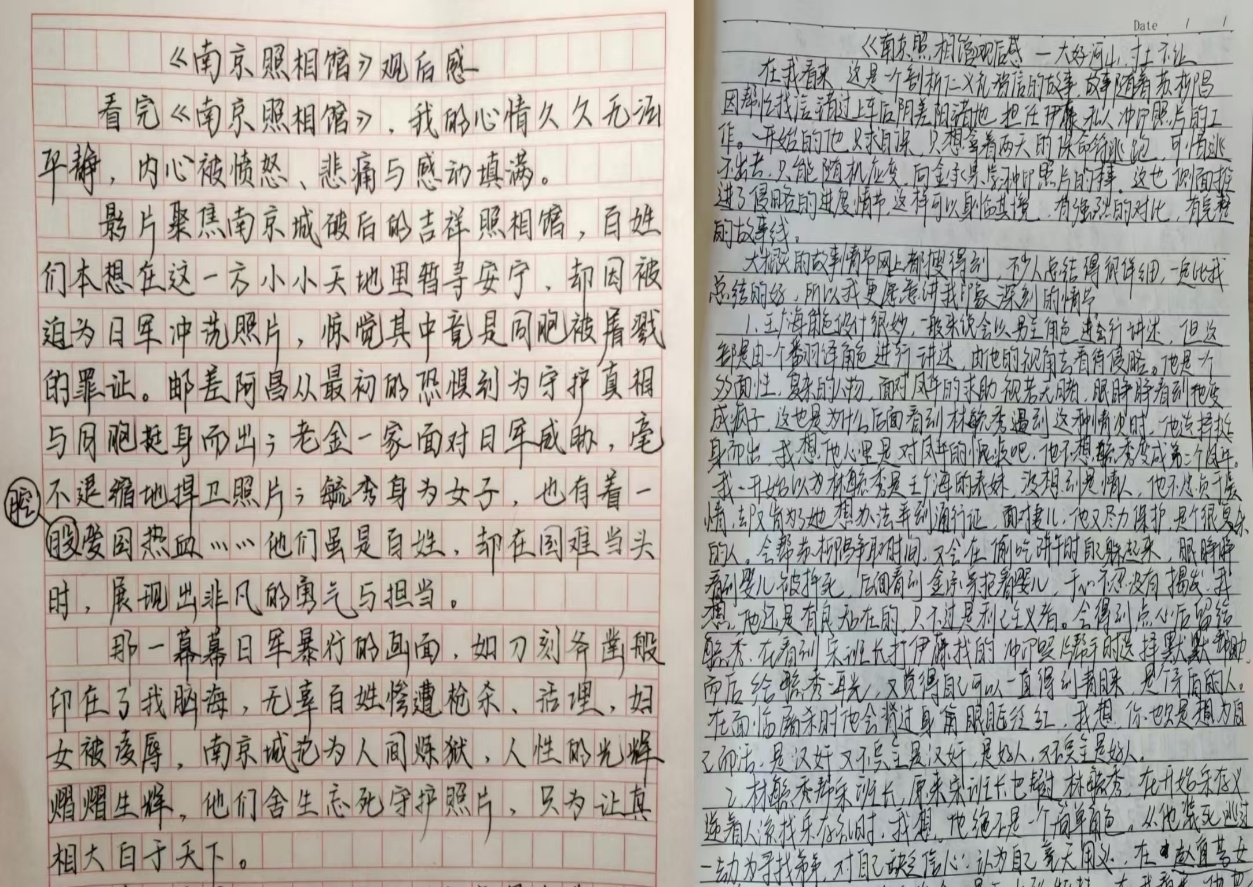 《南京照相馆》观后感
看完《南京照相馆》，我的心情久久无法
平静，内心被愤怒、悲痛与感动填满。
影片聚焦南京城破后的吉祥照相馆，百姓
们本想在这一方小小天地里暂寻安宁，却因被
迫为日军冲洗照片，惊觉其中竟是同胞被屠戮
的罪证。邮差阿昌从最初的恐惧到为守护真相
与同胞挺身而出；老金一家面对日军威胁，毫
不退缩地捍卫照片；毓秀身为女子，也有着一
腔
股爱国热血……他们虽是百姓，却在国难当头
时，展现出非凡的勇气与担当。
那一幕幕日军暴行的画面，如刀刻斧凿般
印在了我脑海，无辜百姓惨遭枪杀、活埋，妇
女被凌辱，南京城沦为人间炼狱，人性的光辉
熠熠生辉，他们舍生忘死守护照片，只为让真
相大白于天下。
Date / /
《南京照相馆观后感 一大好河山，寸土不让
在我看来，这是个剖析仁义礼智信的故事，故事随着苏柳昌
因帮忙找信错过上车后阴差阳错地，担任伊藤私人冲印照片的工
作。一开始的他只求自保，只想拿着两天的保命符逃跑，可惜逃
不出去，只能随机应变，向金老板学冲印照片的事。这也侧面推
进了侵略的进度情节，这样可以身临其境，有强烈的对比，有完整
的故事线。
大概的故事情节网上都搜得到，不少人总结得很详细，一定比我
总结的好，所以我更愿意讲我印象深刻的情节。
1.王广海角色设计很妙，一般来说会以男主角色进行讲述，但这
部是由一个翻译角色进行讲述，由他的视角去看待侵略。他是个
多面性，复杂的人物，面对凤年的求助视若无睹，眼睁睁看到她变
成疯子，这也是为什么后面看到林毓秀遇到这种情况时，他选择挺
身而出，我想他心里是对凤年的愧疚吧，他不想毓秀变成第二个凤年。
我一开始以为林毓秀是王广海的表妹，没想到是情人，他不过贪于美
情，却又肯为她想办法弄到通行证，面对妻儿，他又尽力保护，是个很复杂
的人。会帮苏柳昌争取时间，又会在
看到婴儿被摔死，后面看到金宗宗抱着婴儿，于心不忍没有揭发，我
想，他还是有良知在的，只不过是利己主义者。会得到点心后留给
毓秀，在看到宋班长打伊藤找的冲印照片帮手时选择默默
而后给毓秀耳光，又觉得自己可以一直得到青睐，是个矛盾的人。
在面临屠杀时他会转过身角眼眶泛红，我想，你也只是想为自
己而活，是汉奸又不完全是汉奸，是好人，又不完全是好人。
2.林毓秀帮宋班长，原来宋班长也帮过林毓秀，在开始宋存义
逆着人流找宋存礼时，我想，他绝不是一个简单角色，从他装死逃过
一劫为寻找弟弟，对自己缺乏信心，认为自己毫无用处，在